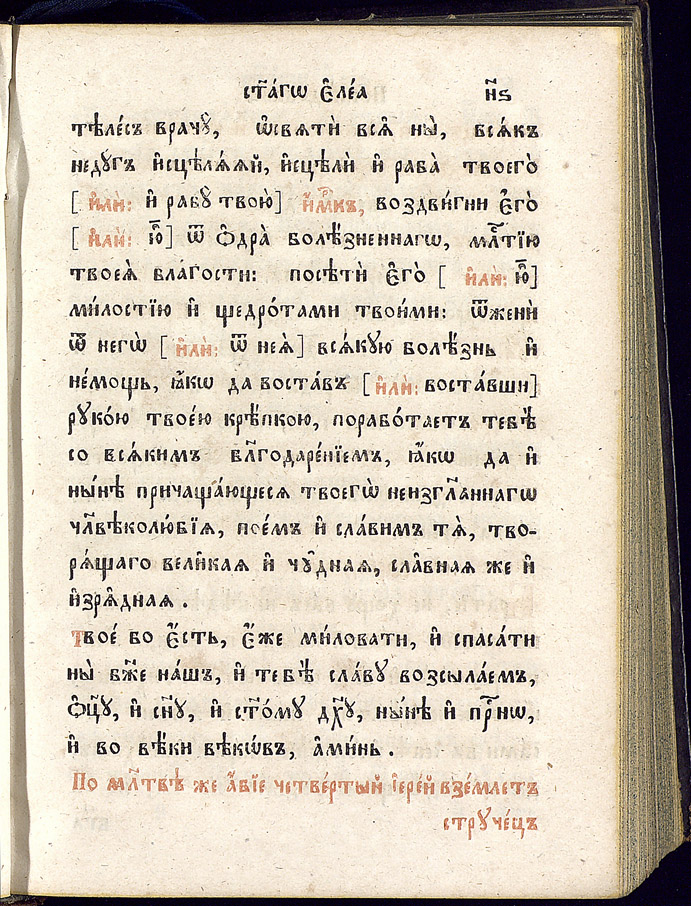 ст҃а́гѡ є҆ле́а н҃ѕ
тѣле́съ врачꙋ̀, ѡ҆свѧтѝ всѧ̑ ны̀, всѧ́къ
недꙋ́гъ и҆сцѣлѧ́ѧй, и҆сцѣлѝ и҆ раба̀ твоего̀
[ и҆лѝ: и҆ рабꙋ̀ твою̀] и҆м҃къ, воздви́гни є҆го̀
[ и҆лѝ: ю҆̀] ѿ ѻ҆дра̀ болѣ́зненнагѡ, мл҃тїю
твоеѧ̀ бла́гости: посѣтѝ є҆го̀ [ и҆лѝ: ю҆̀]
ми́лостїю и҆ щедро́тами твои́ми: ѿженѝ
ѿ негѡ̀ [ и҆лѝ: ѿ неѧ̀] всѧ́кꙋю болѣ́знь и҆
не́мощь, ꙗ҆́кѡ да воста́въ [ и҆лѝ: воста́вши]
рꙋко́ю твое́ю крѣ́пкою, порабо́таетъ тебѣ̀
со всѧ́кимъ бл҃годаре́нїемъ, ꙗ҆́кѡ да и҆
ны́нѣ причаща́ющесѧ твоегѡ̀ неизгл҃аннагѡ
чл҃вѣколю́бїѧ, пое́мъ и҆ сла́вимъ тѧ̀, тво-
рѧ́щаго вели̑каѧ и҆ чꙋ̑днаѧ, сла̑внаѧ же и҆
и҆зрѧ̑днаѧ.
Твое́ бо є҆́сть, є҆́же ми́ловати, и҆ спаса́ти
ны̀ бж҃е на́шъ, и҆ тебѣ̀ сла́вꙋ возсыла́емъ,
ѻ҆ц҃ꙋ̀, и҆ сн҃ꙋ, и҆ ст҃о́мꙋ дх҃ꙋ, ны́нѣ и҆ при́снѡ,
и҆ во вѣ́ки вѣкѡ́въ, а҆ми́нь.
По мл҃твѣ же а҆́бїе четве́ртый і҆ере́й взе́млетъ
стрꙋче́цъ